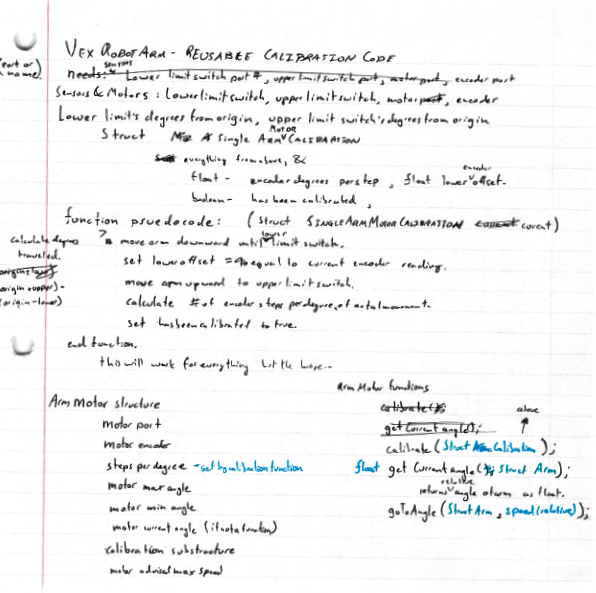 VEX ROBOT ARM - REUSABLE CALIBRATION CODE
(port or name)
sensors
needs: Lower limit switch port #, upper limit switch port, motor port, encoder port
Sensors & Motors: Lower limit switch, upper limit switch, motor port, encoder
Lower limit's degrees from origin, upper limit switch's degrees from origin
Struct A Single ARM MOTOR CALIBRATION
everything from above, &
float - encoder degrees per step, float lower encoder offset.
boolean - has been calibrated,
function psuedocode: (Struct SINGLE ARM MOTOR CALIBRATION curent)
? move arm downward until lower limit switch.
set lower offset = equal to current encoder reading.
move arm upward to upper limit switch.
calculate # of encoder steps per degree of actual movment.
set has been calibrated to true.
calculate degrees
traveled.
(origin+upper) -
(origin-lower)
end function.
this will work for everything but the base--
Arm Motor structure
motor port
motor encoder
steps per degree - set by calibration function
motor max angle
motor min angle
motor current angle (if not a function)
calibration substructure
motor advised max speed
arm Motor functions
calibrate();
get Current angle();
above
calibrate (Struct Calibration);
float get Current angle (Struct Arm);
returns relative angle of arm as float.
goToAngle (Struct Arm, speed(relative));